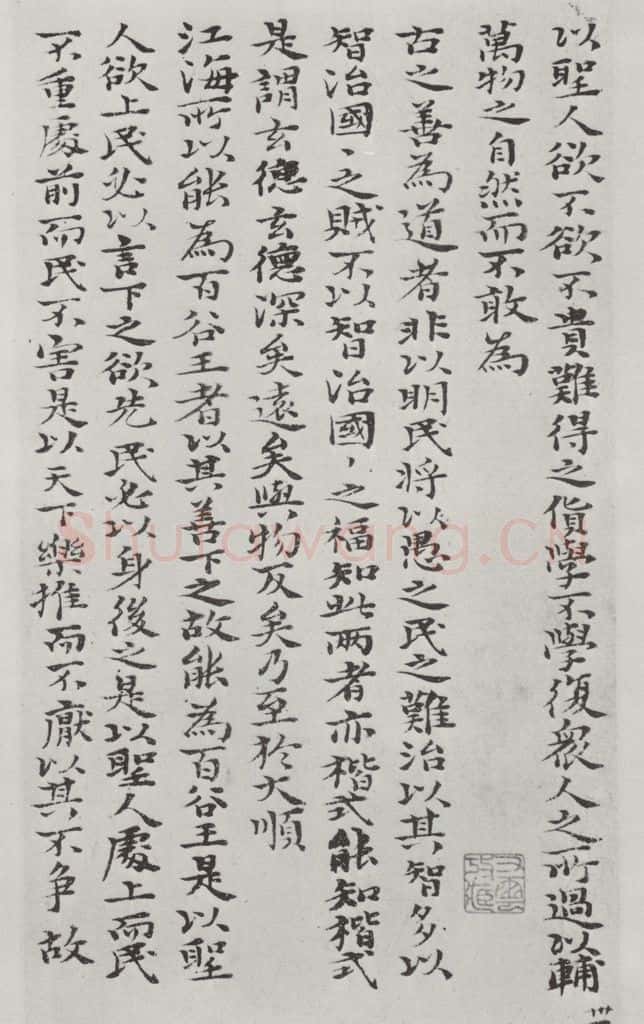 以聖人欲不欲不貴難得之貨學不學復衆人之所過以輔
萬物之自然而不敢為
古之善為道者非以明民將以愚之民之難治以其智多以
智治國、之賊不以智治國、之福知此兩者亦楷式能知楷式
是謂玄德玄德深矣遠矣與物反矣乃至於大順
江海所以能為百谷王者以其善下之故能為百谷王是以聖
人欲上民必以言下之欲先民必以身後之是以聖人處上而民
不重處前而民不害是以天下樂推而不厭以其不争故
Shufawang.CN